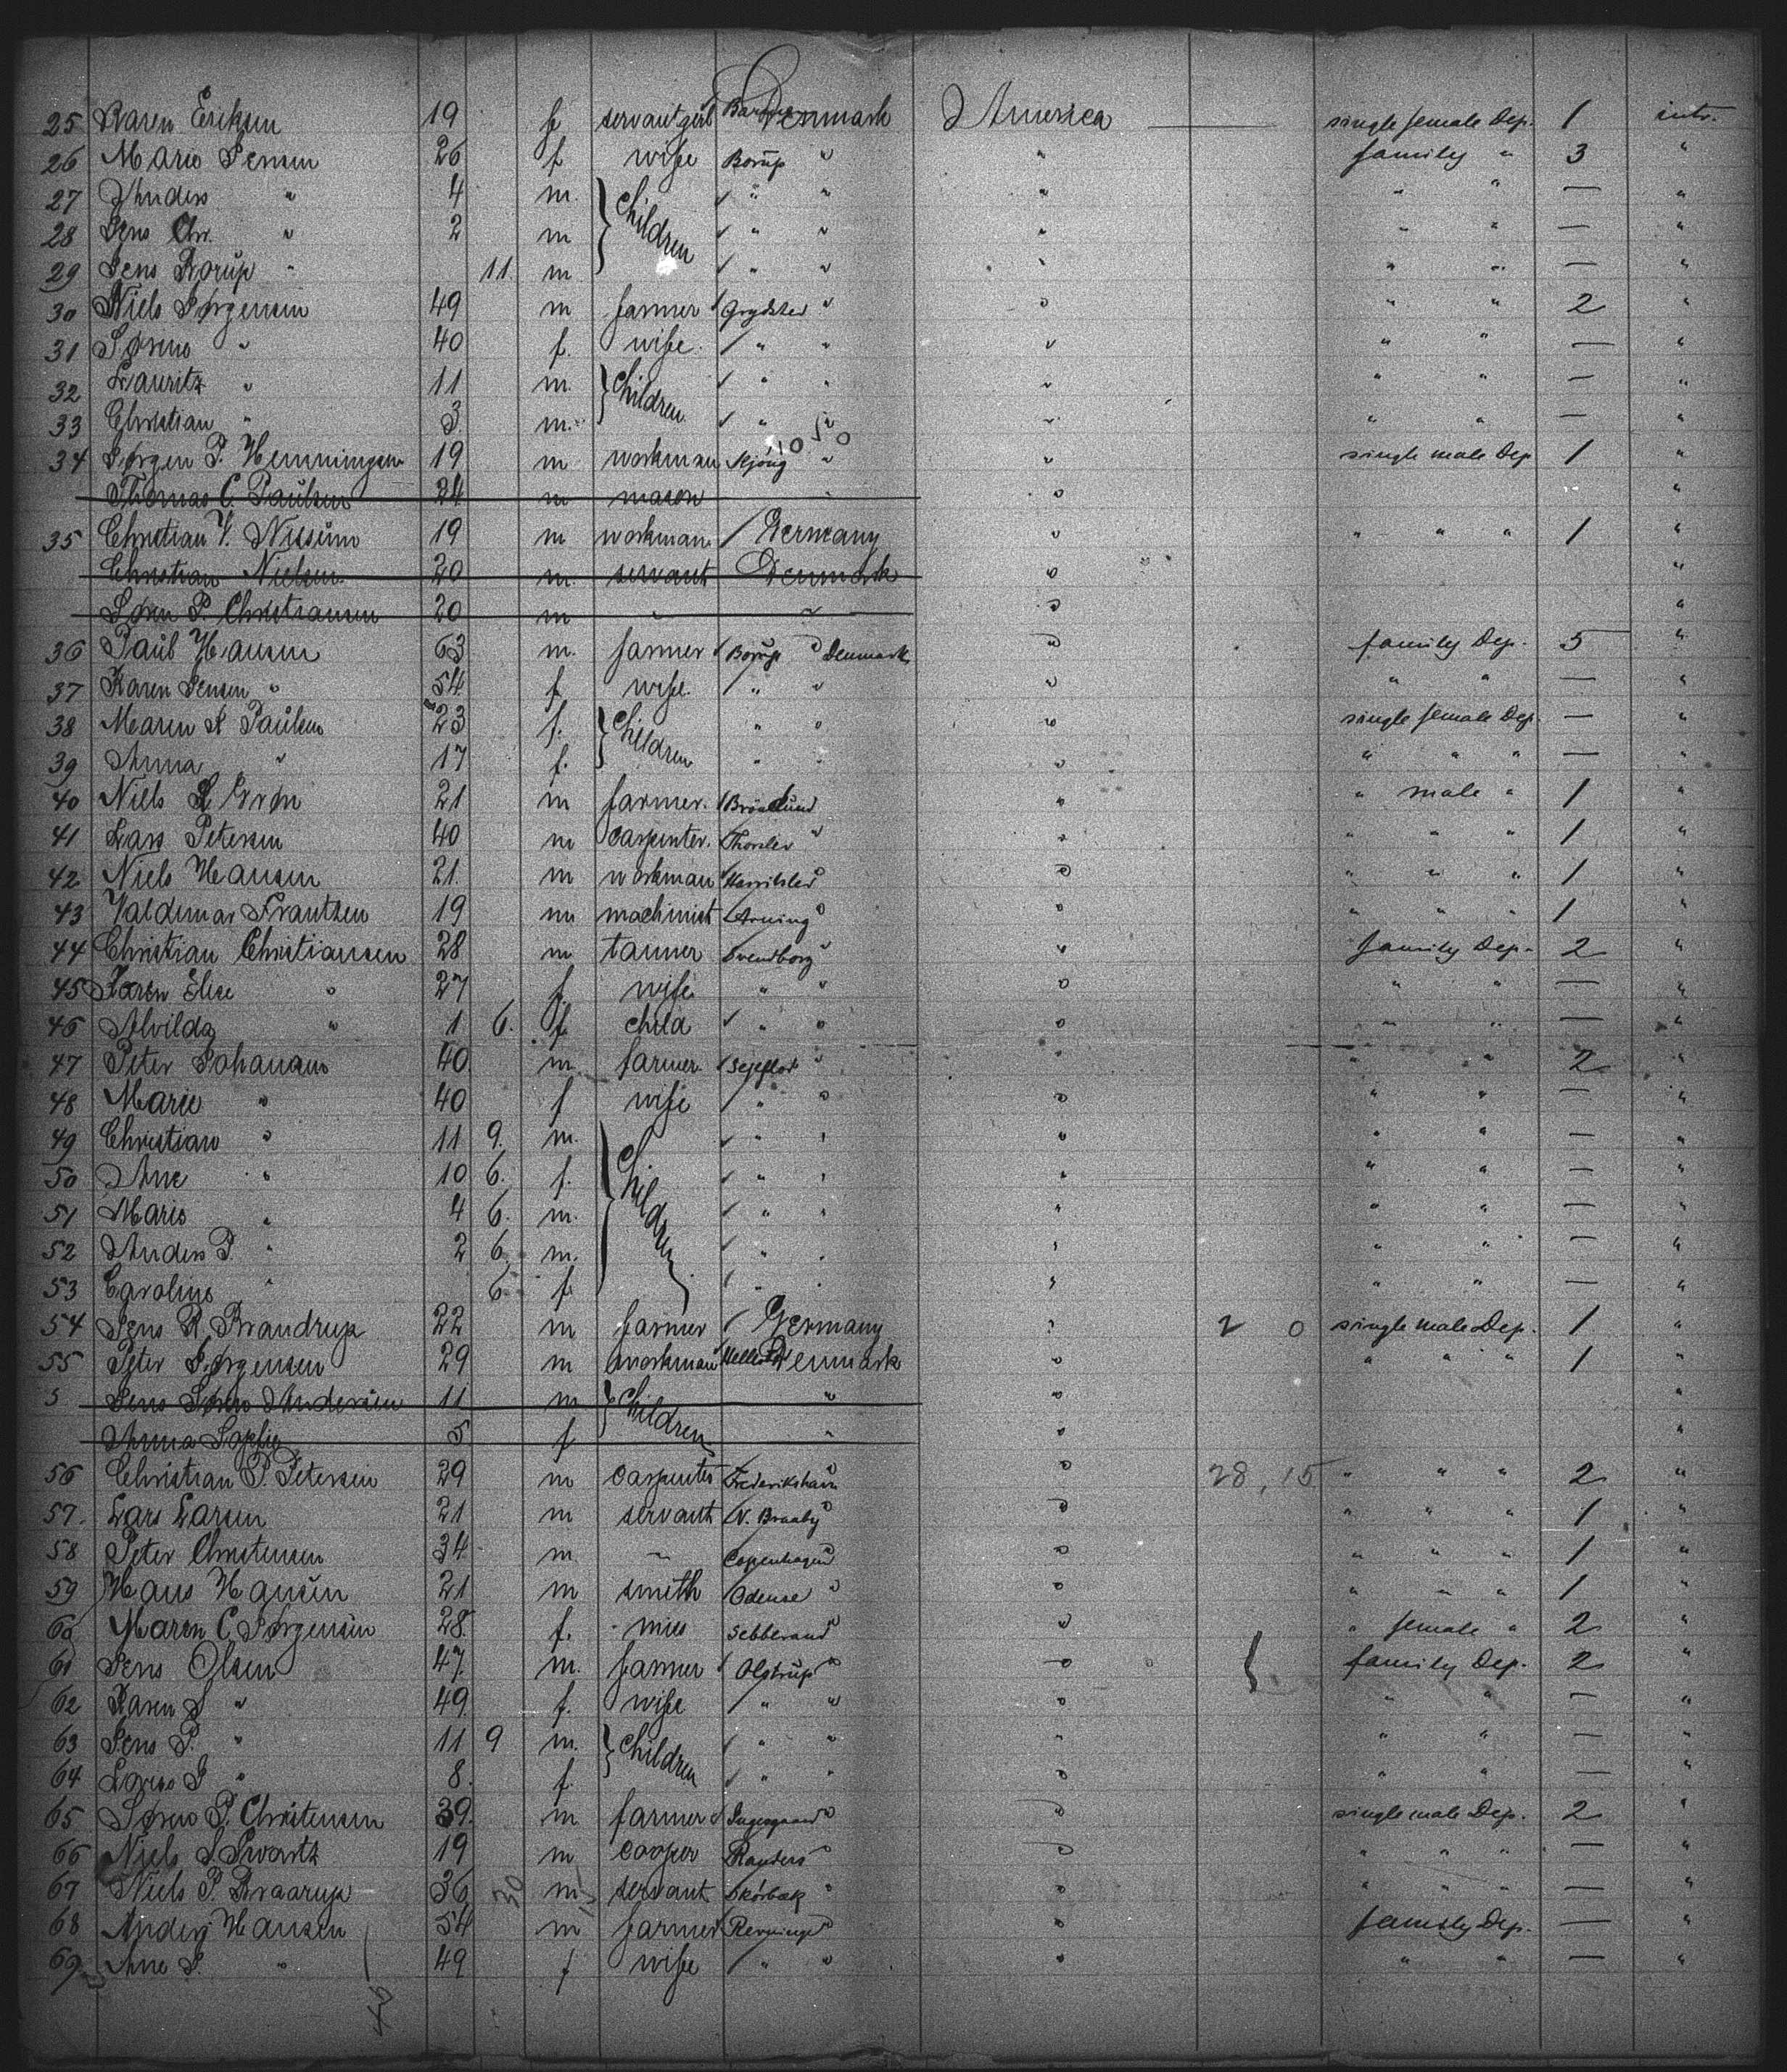 25 Karen Eriksen 19 f servant girl Denmark America single female Dep. 1 intr.
26 Marie Jensen 26 f wife Borup " " family " 3 "
27 Anders " 4 m. Children " " " " " — "
28 Jens Chr. " 2 m " " " " " — "
29 Jens Borup " 11 m " " " " " — "
30 Niels Jørgensen 49 m farmer " " " " 2 "
31 Sørine " 40 f. wife " " " " " — "
32 Lauritz " 11 m. Children " " " " " — "
33 Christian " 3 m. " " " " " — "
34 Jørgen P. Hemmingsen 19 m workman " " single male Dep 1 "
Thomas C. Paulsen 24 m mason " " "
35 Christian V. 19 m workman Germany " " " " 1 "
Christian Nielsen 20 m. servant Denmark " "
Søren P. Christiansen 20 m " " " "
36 Paul Hansen 63 m. farmer Borup Denmark " family Dep. 5 "
37 Karen Jensen " 54 f wife " " " " " — "
38 Maren K Paulsen 23 f. Children " " " single female Dep. — "
39 Anna " 17 f. " " " " " " — "
40 Niels 21 m farmer. " " male " 1 "
41 Lars Petersen 40 m carpenter. " " " " " 1 "
42 Niels Hansen 21 m workman " " " " " 1 "
43 Valdemar Frantzen 19 m machinist " " " " " 1 "
44 Christian Christiansen 28 m tanner Svendborg " " family Dep. 2 "
45 Karen Elise " 27 f. wife " " " " " — "
46 Alvilda " 1 6. f child " " " " " — "
47 Peter Johansen 40 m farmer Sejlflod " " " " 2 "
48 Marie " 40 f wife " " " " " — "
49 Christian " 11 9. m. Children " " " " " — "
50 Ane " 10 6. f. " " " " " — "
51 Maris " 4 6. m. " " " " " — "
52 Anders P. " 2 6. m. " " " " " — "
53 Caroline " 6 f " " " " " — "
54 Jens R. Brandrup 22 m farmer Germany " 2 0 single male Dep. 1 "
55 Peter Jørgensen 29 m workman Denmark " " " " 1 "
5 Jens Andersen 11 m Children " " "
Anna Sophie 5 f " " "
56 Christian P. Petersen 29 m carpenter Frederikshavn " " 28, 15 " " " 2 "
57. Lars Larsen 21 m servant N. Braaby " " " " " 1 "
58 Peter Christensen 34 m. " Copenhagen " " " " " 1 "
59 Hans Hansen 21 m smith Odense " " " " " 1 "
60 Maren C. Jørgensen 28. f. miss " " " female " 2 "
61 Jens Olsen 47. m. farmer Olstrup " " family Dep. 2 "
62 Karen S " 49 f. wife " " " " " — "
63 Jens P. " 11 9 m. Children " " " " " — "
64 " 8. f. " " " " " — "
65 P. Christensen 39. m farmer " " single male Dep. 2 "
66 Niels 19 m cooper Randers " " " " " — "
67 Niels P. Braarup 36 30 m servant Skörbæk " " " " " — "
68 Anders Hansen 54 m farmer Revninge " " family Dep. — "
69 Ane " 49 f wife " " " " " — "